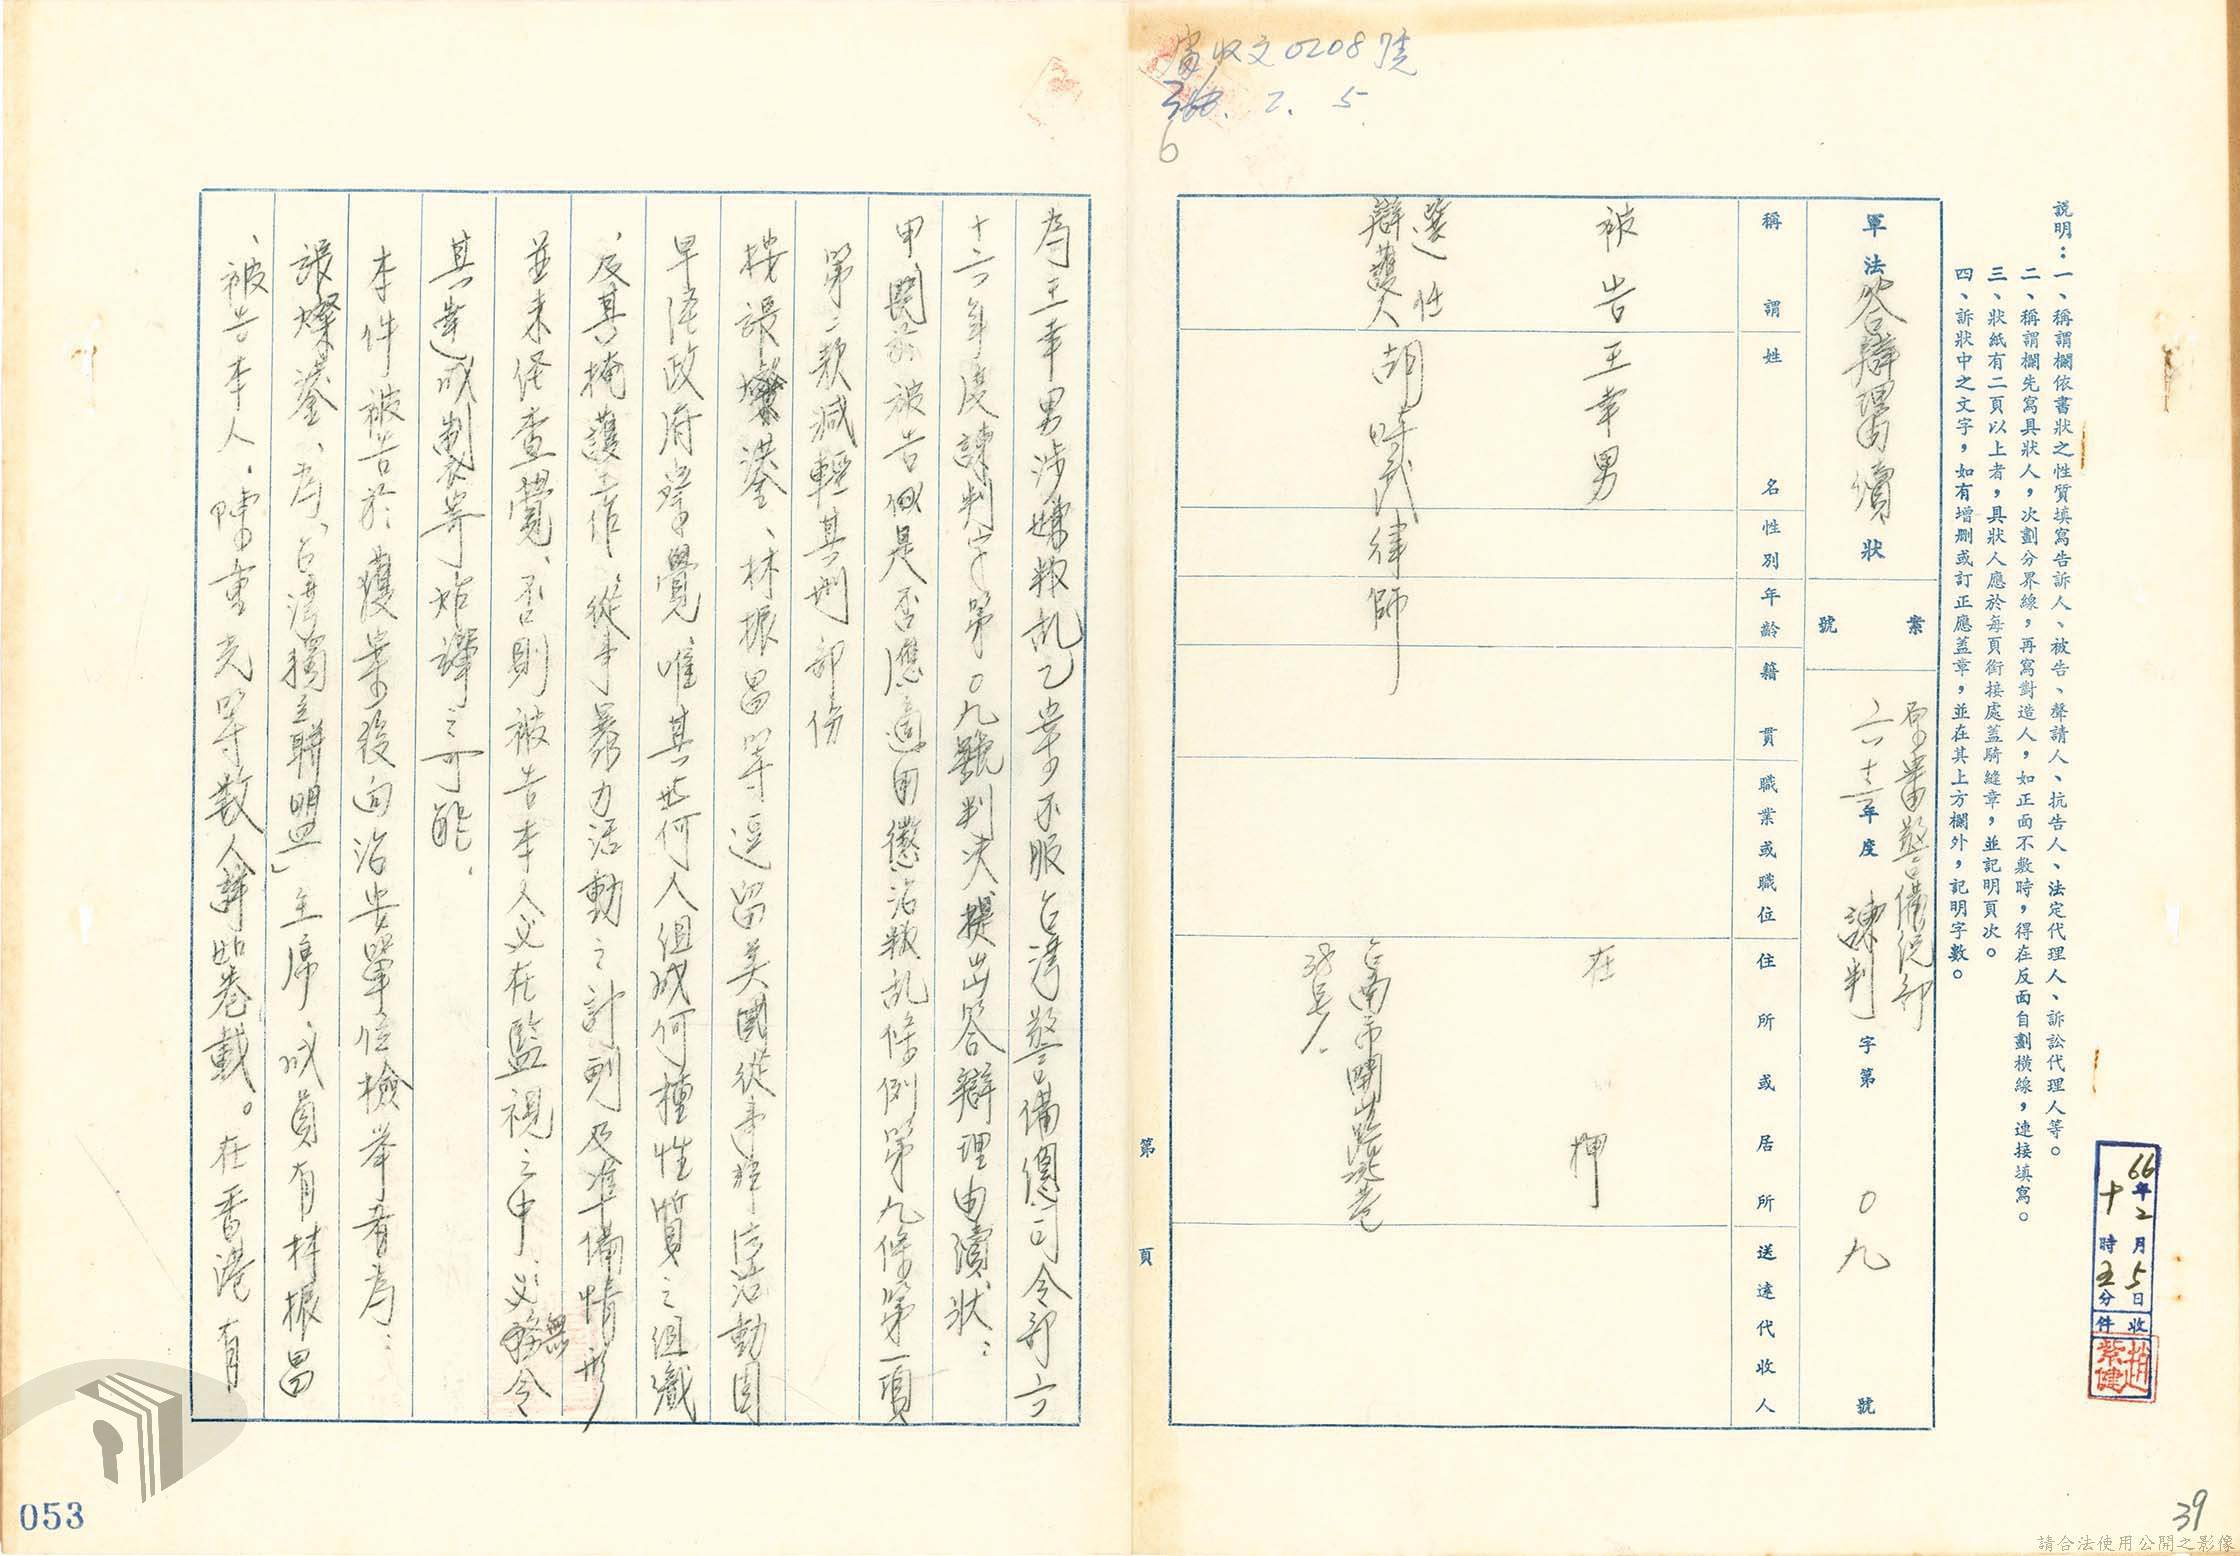 審收文0208號
2. 5
6
說明：一、稱謂欄依書狀之性質填寫告訴人、被告、聲請人、抗告人、法定代理人、訴訟代理人等。
二、稱謂欄先寫具狀人，次劃分界線，再寫對造人，如正面不敷時，得在反面自劃橫線，連接填寫。
三、狀紙有二頁以上者，具狀人應於每頁銜接處蓋騎縫章，並記明頁次。
四、訴狀中之文字，如有增刪或訂正應蓋章，並在其上方欄外，記明字數。
66年2月5日收
十時五分件
趙紫健
軍法答辯理由續狀
案號
原審警備總部
六十六年度諫判字第〇九號
稱謂
姓名
性別
年齡
籍貫
職業或職位
住所或居所
送達代收人
被告
王幸男
在押
選任
辯護人
胡時民律師
台南市開山路
號
第頁
為王幸男涉嫌叛乱乙案不服台灣警備總司令部六
十六年度諫判字第〇九號判決提出答辯理由續狀：
甲、關於被告似是否應適用懲治叛乱條例第九條第一項
第二款減輕其刑部份
按張燦鍙、林振昌等逗留美國從事非法活動固
早經政府察覺唯其由何人組成何種性質之組織
、及其掩護工作、從事暴力活動之計劃及準備情形
並未經查覺、否則被告本人必在監視之中、必無令
其達成製寄炸彈之可能．
本件被告於獲案後向治安單位檢举者為：
張燦鍙、為「台灣獨立聯盟」主席、成員有林振昌
、被告本人．陳重光等數人詳如卷載。在香港有
053
39
請合法使用公開之影像